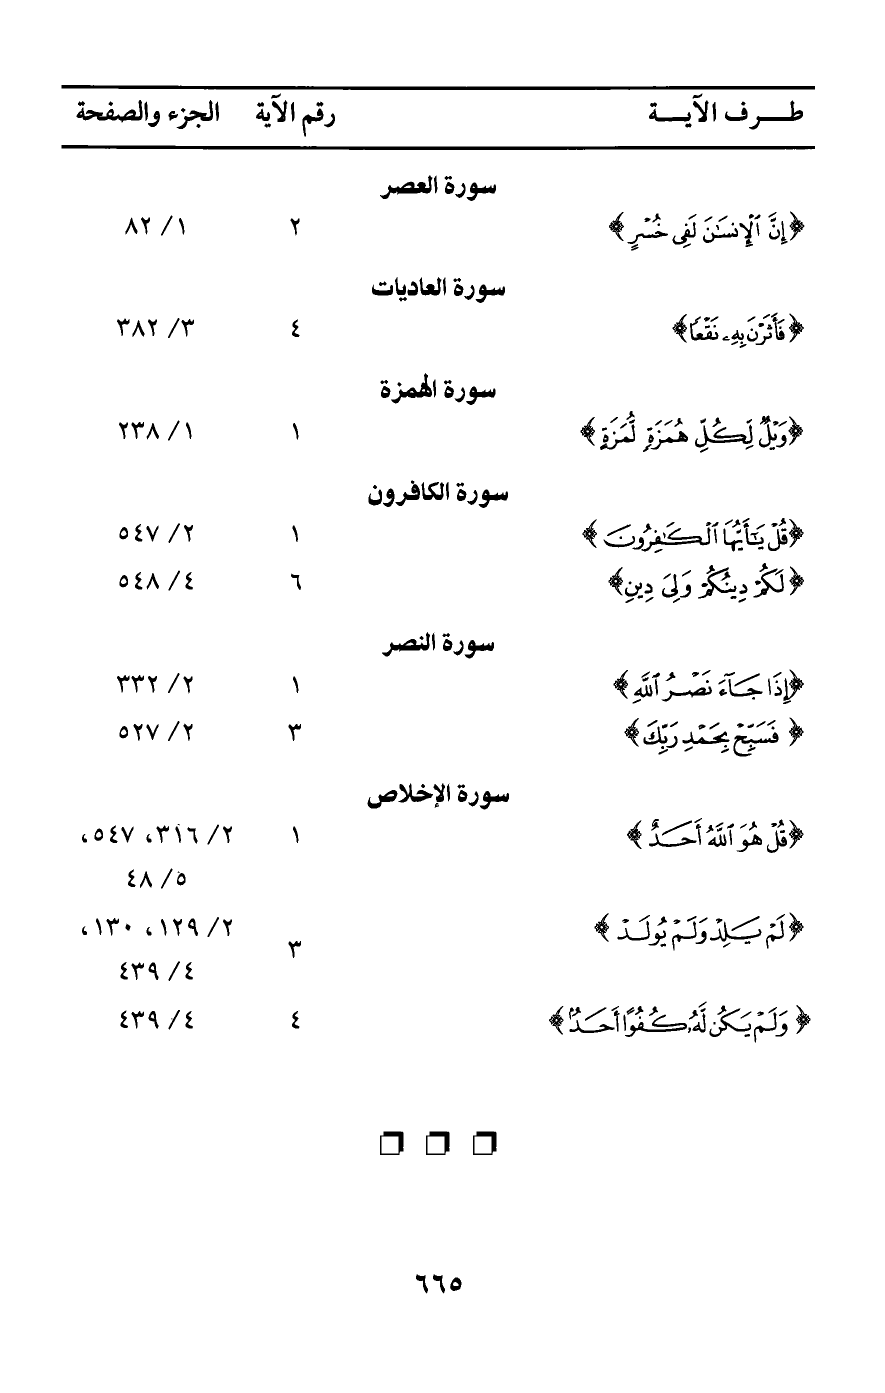 طـــرف الآيـــة رقم الآية الجزء والصفحة
سورة العصر
﴿إِنَّ ٱلْإِنسَـٰنَ لَفِى خُسْرٍ﴾ ٢ ١/ ٨٢
سورة العاديات
﴿فَأَثَرْنَ بِهِۦ نَقْعًا﴾ ٤ ٣/ ٣٨٢
سورة الهمزة
﴿وَيْلٌ لِّكُلِّ هُمَزَةٍ لُّمَزَةٍ﴾ ١ ١/ ٢٣٨
سورة الكافرون
﴿قُلْ يَـٰٓأَيُّهَا ٱلْكَـٰفِرُونَ﴾ ١ ٢/ ٥٤٧
﴿لَكُمْ دِينُكُمْ وَلِىَ دِينِ﴾ ٦ ٤/ ٥٤٨
سورة النصر
﴿إِذَا جَآءَ نَصْرُ ٱللَّهِ﴾ ١ ٢/ ٣٣٢
﴿فَسَبِّحْ بِحَمْدِ رَبِّكَ﴾ ٣ ٢/ ٥٢٧
سورة الإخلاص
﴿قُلْ هُوَ ٱللَّهُ أَحَدٌ﴾ ١ ٢/ ٣١٦، ٥٤٧،
٥/ ٤٨
﴿لَمْ يَلِدْ وَلَمْ يُولَدْ﴾ ٣ ٢/ ١٢٩، ١٣٠،
٤/ ٤٣٩
﴿وَلَمْ يَكُن لَّهُۥ كُفُوًا أَحَدٌۢ﴾ ٤ ٤/ ٤٣٩
٦٦٥